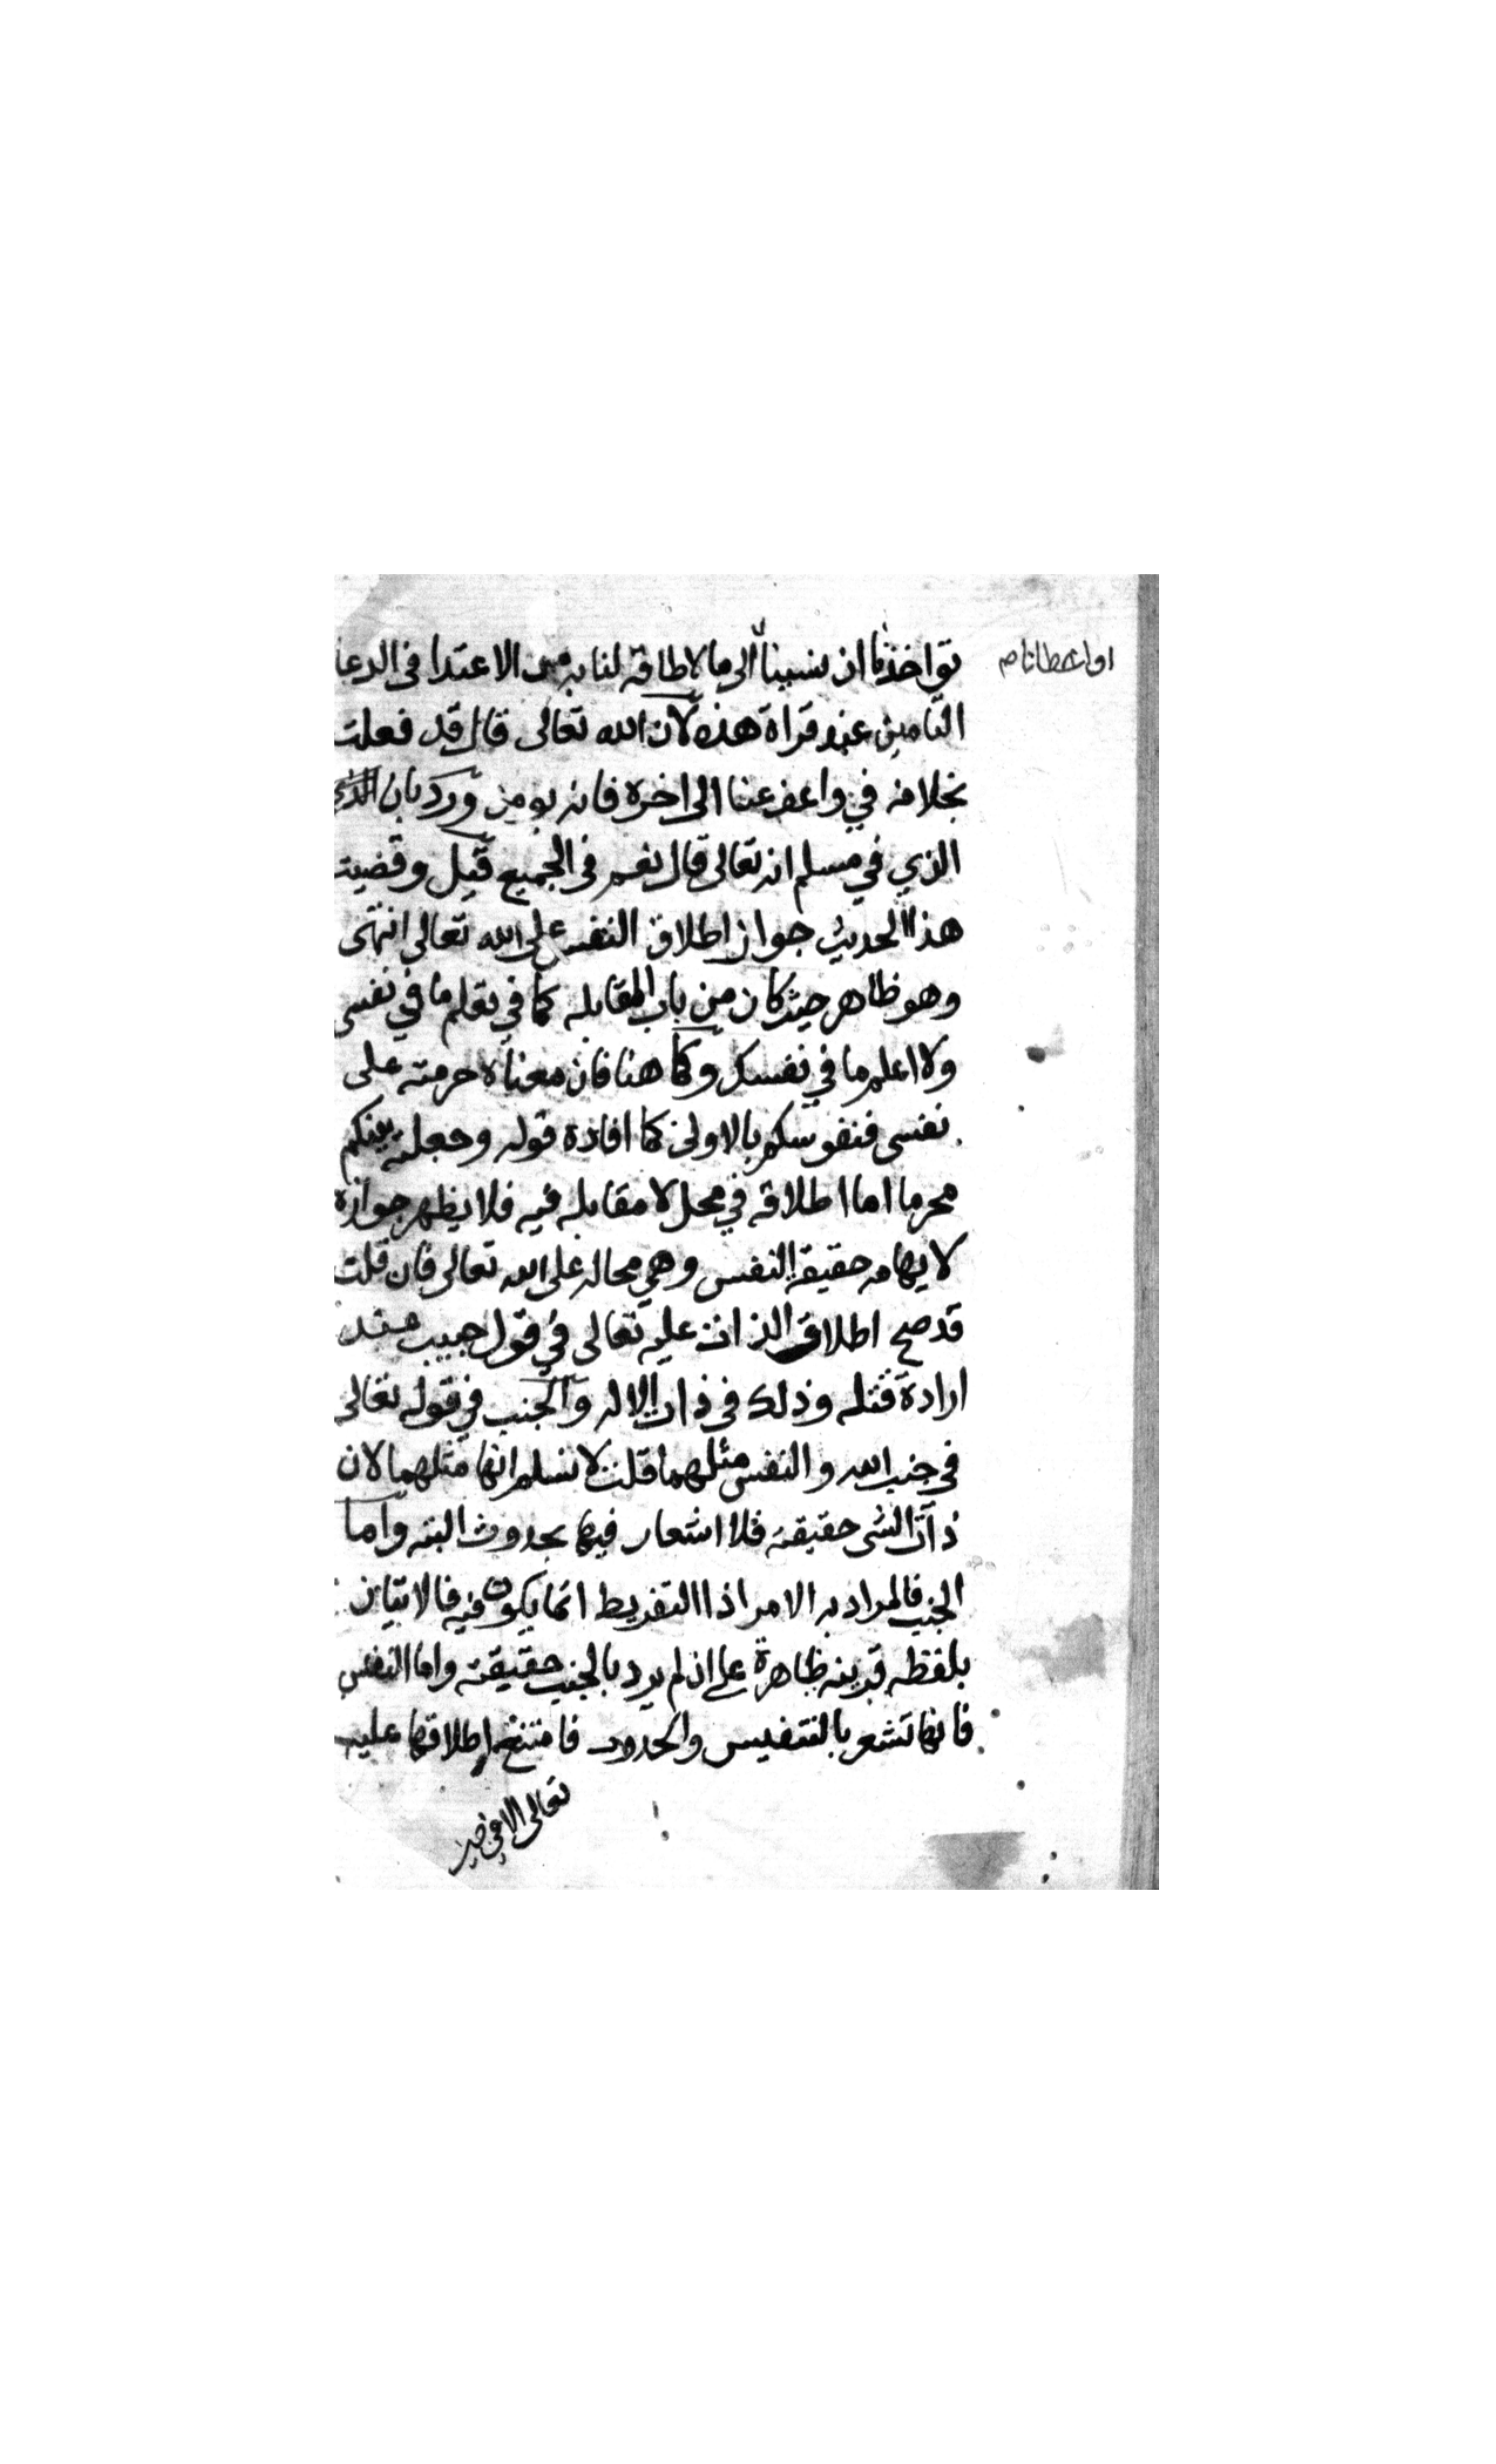 تواخذنا ان نسينا الى ما لا طاقة لنا به من الاعتدا فى الدعا
او اخطانا صح
التامين عند قراة هذه لان الله تعالى قال قد فعلت
بخلافه في واعف عنا الى اخره فانه يومن ورد بان
الذي في مسلم انه تعالى قال نعم فى الجميع قيل وقضية
هذا الحديث جواز اطلاق النفس على الله تعالى انتهى
وهو ظاهر حيث كان من باب المقابلة كما في تعلم ما في نفسى
ولا اعلم ما في نفسك وكما هنا فان معناه حرمته على
نفسى فنفوسكم بالاولى كما افاده قوله وجعلته بينكم
محرما اما اطلاقه في محل لا مقابلة فيه فلا يظهر جوازه
لايهامه حقيقة النفس وهي محالة على الله تعالى فان قلت
قد صح اطلاق الذات عليه تعالى في قول حبيب عند
ارادة قتله وذلك في ذات الاله والجنب في قوله تعالى
في جنب الله والنفس مثلهما قلت لا نسلم انها مثلهما لان
ذات الشى حقيقته فلا اشعار فيها بحدوث البتة واما
الجنب فالمراد به الامر اذ التفريط انما يكون فيه فالاتيان
بلفظه قرينة ظاهرة على انه لم يرد بالجنب حقيقته واما النفس
فانها تشعر بالتنفيس والحدوث فامتنع اطلاقها عليه
تعالى الا في حيز